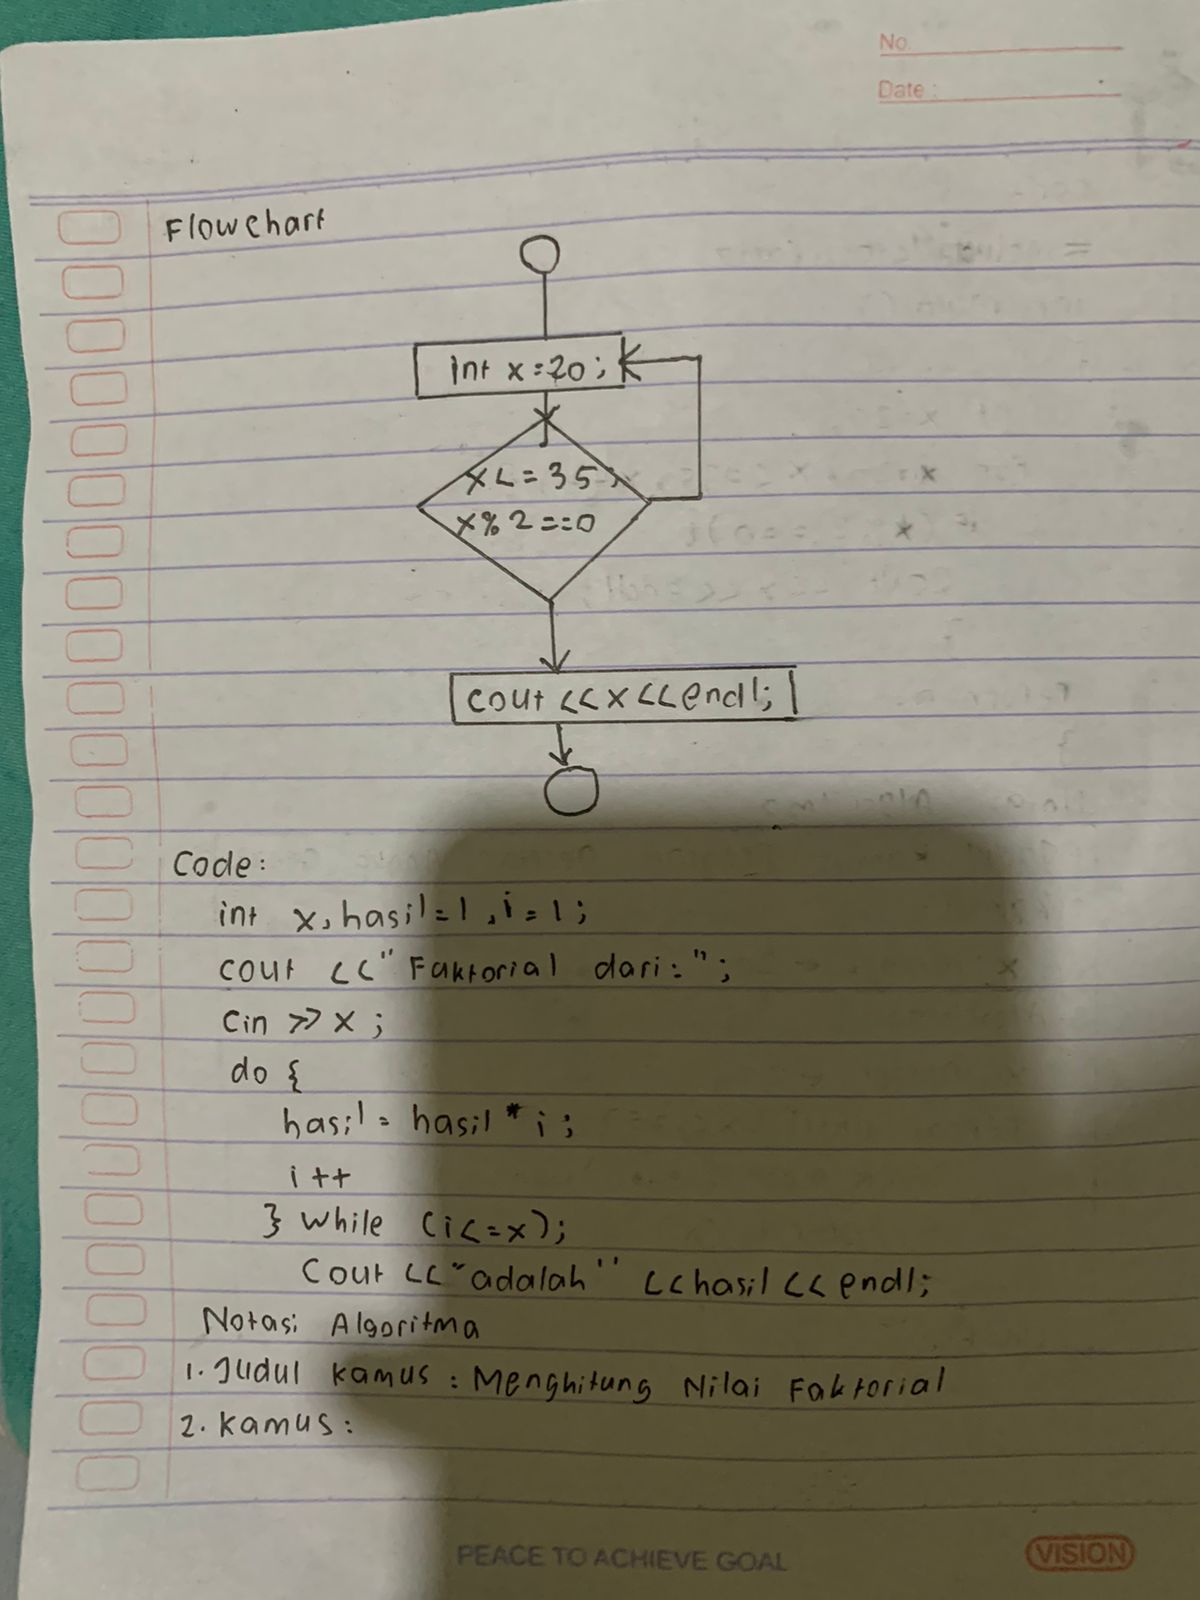 No.
Date :
Flowchart
int x=20;
x<=35;
x%2==0
cout <<x<<endl;
Code:
int x, hasil=1, i=1;
cout <<"Faktorial dari:";
cin >> x;
do {
hasil = hasil * i;
i++
} while (i<=x);
Cout <<"adalah" <<hasil << endl;
Notasi Algoritma
1. Judul kamus : Menghitung Nilai Faktorial
2. kamus:
PEACE TO ACHIEVE GOAL
VISION